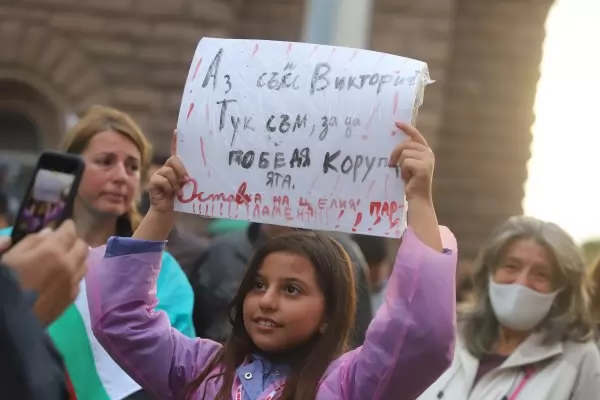 Аз съм Виктория
Тук съм, за да
победя Коруп
ята.
Оставка на целия
ПАР
ЛАМЕНТ!!!